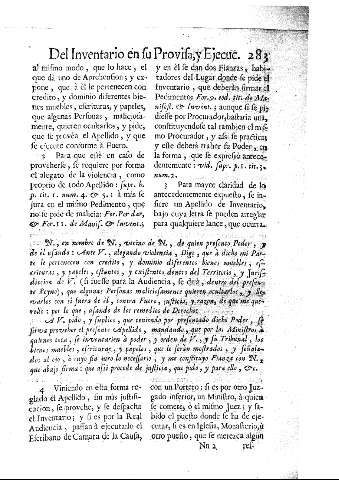 Del Inventario en su Provisa, y Execuc. 283
al mismo modo, que lo hace, el
que dà uno de Aprehension; y ex-
pone, que à èl le pertenecen con
credito, y dominio diferentes bie-
nes muebles, escrituras, y papeles,
que algunas Personas, maliciosa-
mente, quieren ocultarlos, y pide,
que se provèa el Apellido, y que
se execute conforme à Fuero.
2 Para que este en caso de
proveherse, se requiere por forma
el alegato de la violencia, como
proprio de todo Apellido: supr. §.
cap. 1. num. 4. & 5. i à mas se
jura en el mismo Pedimento, que
no se pide de malicia: For. Per dar,
& For. 11. de Manif. & Invent.;
y en èl se dan dos Fianzas, habi-
tadores del Lugar donde se pide el
Inventario, que deberàn firmar el
Pedimento: For. 9. eod. tit. de Ma-
nifest. & Invent.; aunque si se pi-
diesse por Procurador, bastaria una,
constituyendose tal tambien el mis-
mo Procurador, y assi se practica;
y este deberà traher su Poder, en
la forma, que se expressò antece-
dentemente: vid. supr. p. 1. tit. 3.
num. 2.
3 Para mayor claridad de lo
antecedentemente expuesto, se in-
siere un Apellido de Inventario,
bajo cuya letra se pueden arreglar
para qualquiere lance, que ocurra.
N. en nombre de N. vecino de N. de quien presento Poder, y
de èl usando: Ante V. alegando violencia, Digo, que à dicho mi Par-
te le pertenecen con credito, y dominio diferentes bienes muebles, es-
crituras, y papeles, sitantes, y existentes dentro del Territorio, y Juris-
diccion de V. (Si fuesse para la Audiencia, se dirà, dentro del presen-
te Reyno) que algunas Personas maliciosamente quieren ocultarlos, y lle-
varlos con si fuera de èl, contra Fuero, justicia, y razon, de que me que-
rello: por lo que, usando de los remedios de Derecho:
A V. pido, y suplico, que teniendo por presentado dicho Poder, se
sirva proveher el presente Apellido, mandando, que por los Ministros à
quienes toca, se inventarien à poder, y orden de V. y su Tribunal, los
bienes muebles, escrituras, y papeles, que le seràn mostrados, y señala-
dos al ojo, à cuyo fin juro lo necessario, y me constituyo Fianza con N.
que abajo firma: que assi procede de justicia, que pido, y para ello, &c.
4 Viniendo en esta forma re-
glado el Apellido, sin mas justifi-
cacion, se provehe, y se despacha
el Inventario; y si es por la Real
Audiencia, passan à executarlo el
Escribano de Camara de la Causa,
con un Portero; si es por otro Juz-
gado inferior, un Ministro, à quien
se comete, ò el mismo Juez; y sa-
bido el puesto donde se ha de exe-
cutar, si es en Iglesia, Monasterio, ù
otro puesto, que se merezca algun
Nn 2 res-